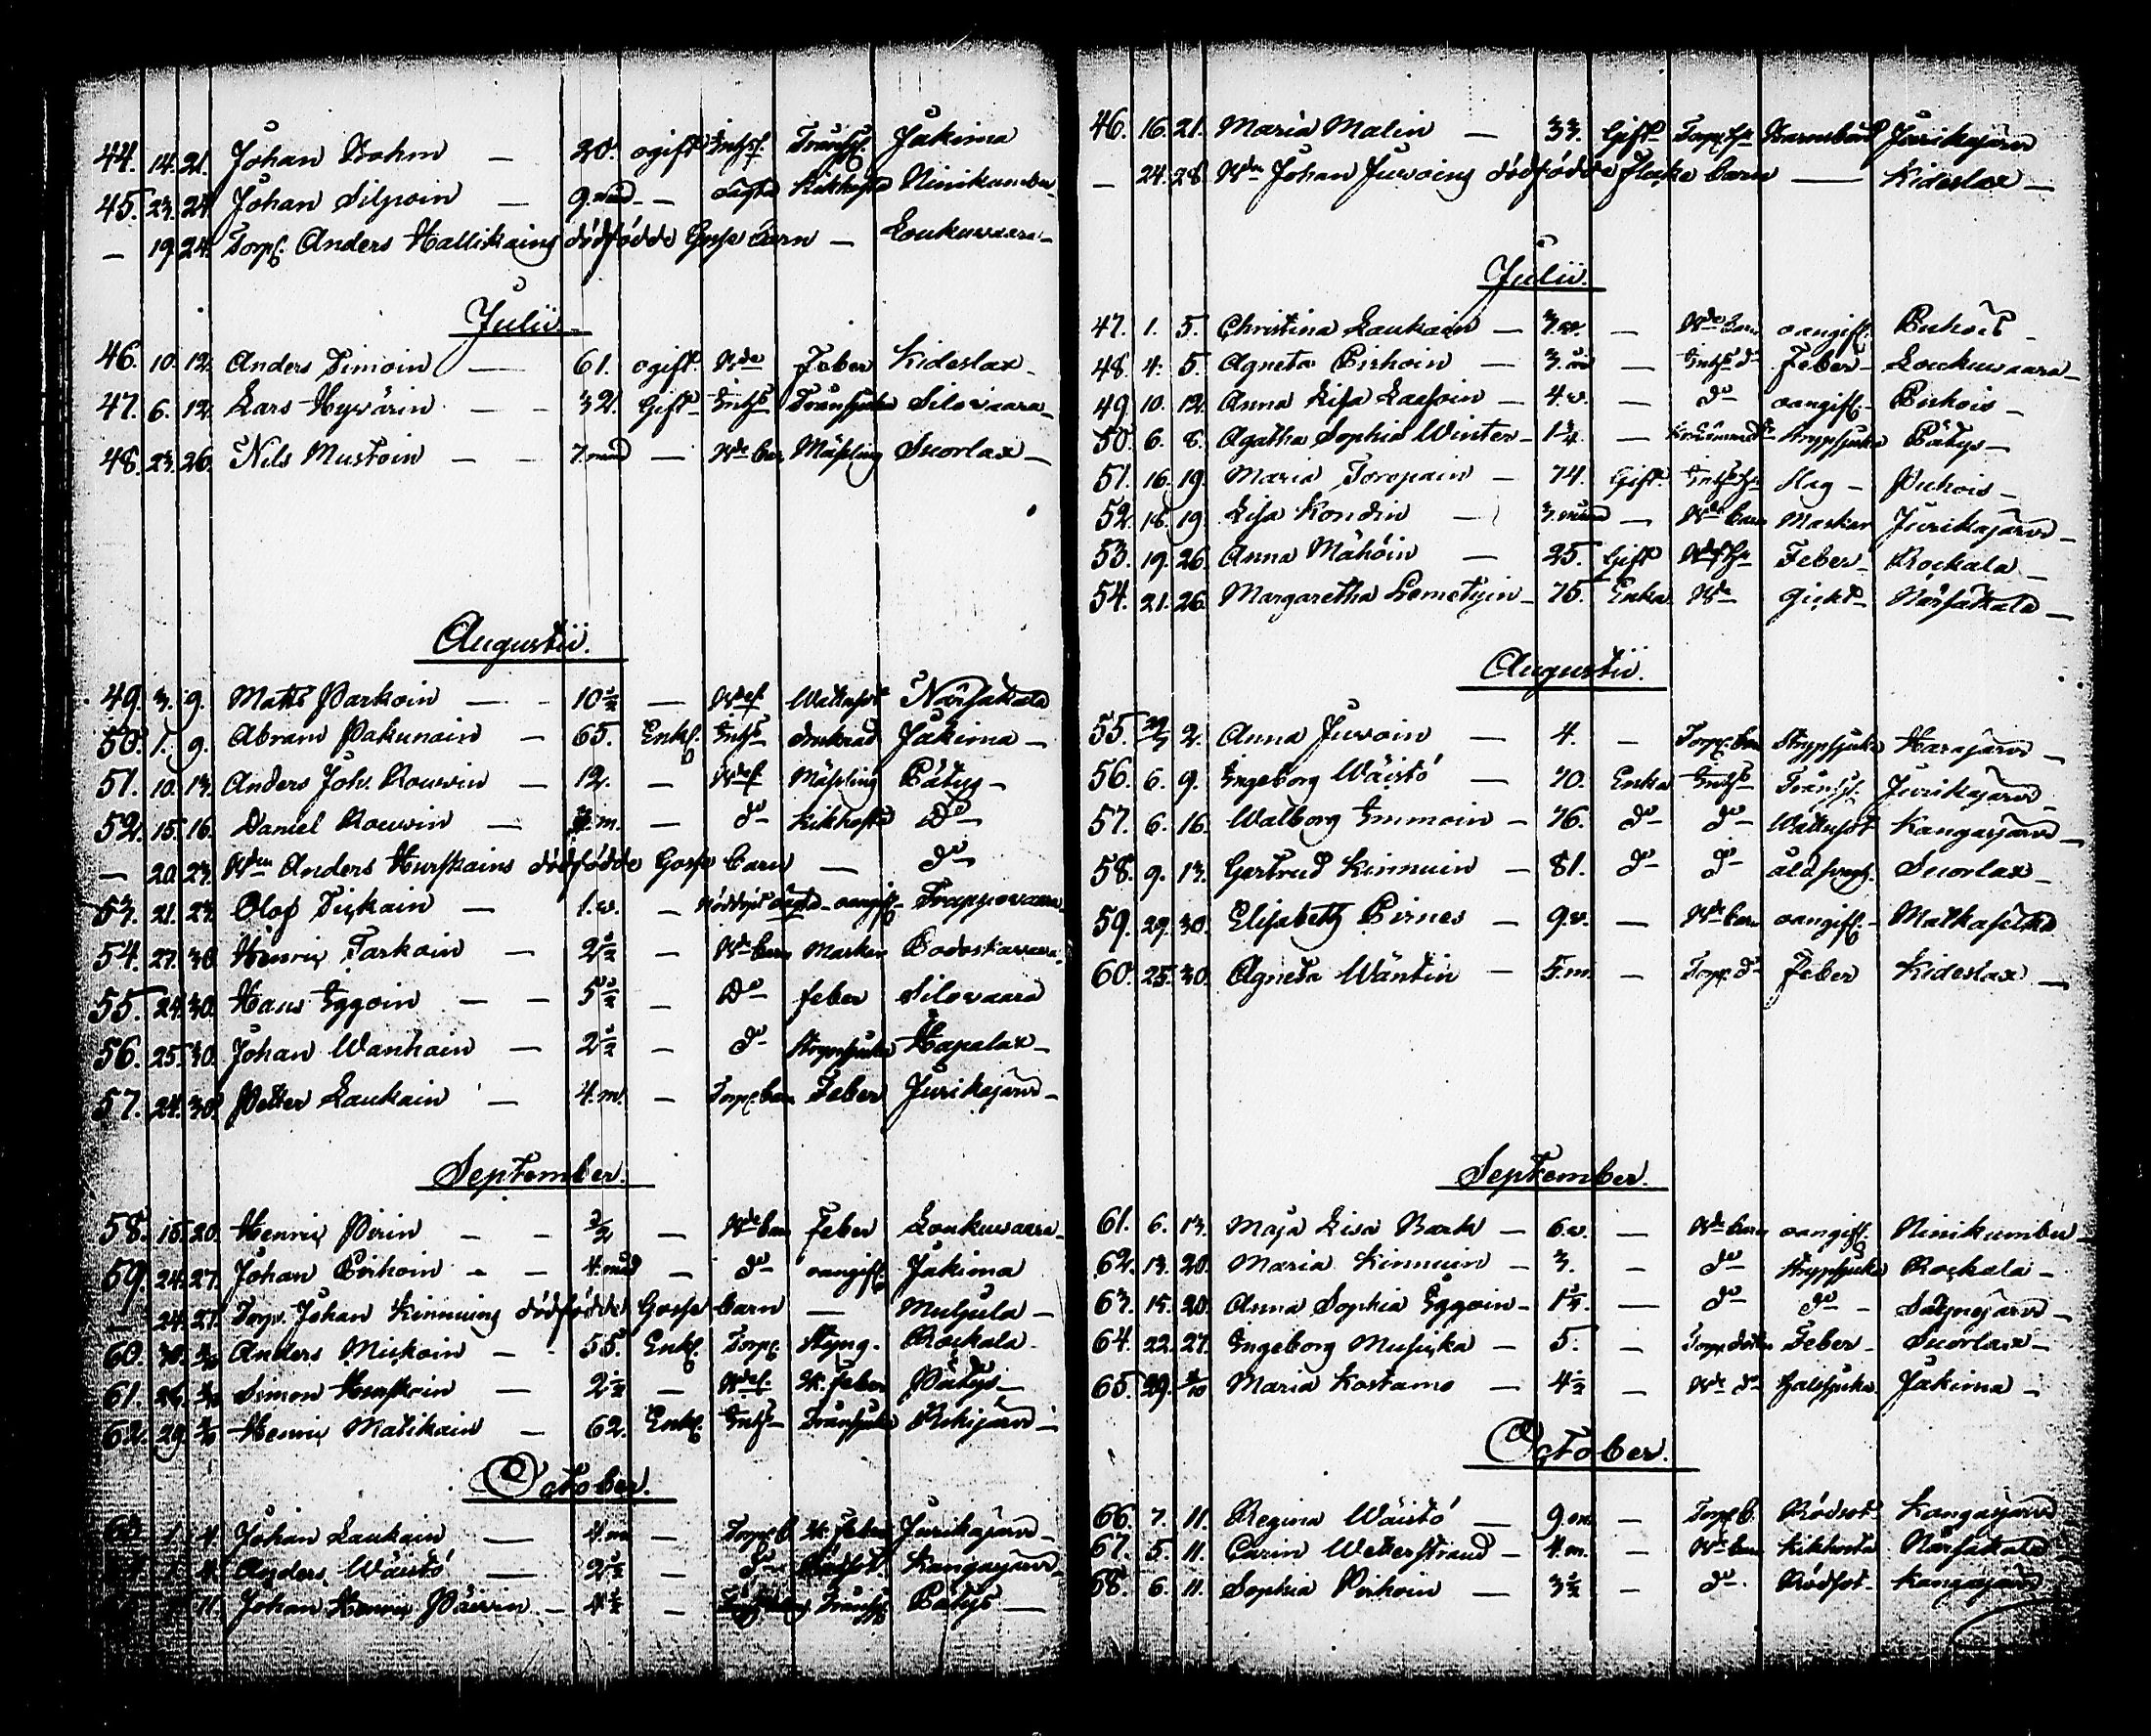 44. 14. 21. Johan Bohm — 20. ogift Inhs. Tråns. Jakima
45. 23. 24. Johan Silpoin — 9. mnd — Kikhosta Ninikumbu
— 19. 24. Torp. Anders Hallikains dödfödde Gosse barn — Loukuwaara
Julii
46. 10. 12. Anders Timoin — 61. ogift. Feber Kideslax
47. 6. 12. Lars Hyvärin — 32. Gift Inhs Trånsjuka Silowaara
48. 23. 26. Nils Mustoin — 7. mnd — Bde barn Mässling Suorlax
Augustii.
49. 3. 9. Matts Parkoin — 10½ — Bdes. Wattusot Närsäkala
50. 1. 9. Abram Pakunain — 65. Enkl. Inhs Jakima
51. 10. 13. Anders Joh. Rouvin — 12. — Bdes. Mässling Pätys
52. 15. 16. Daniel Rouvin — m. — do Kikhosta Do
— 20. 23. Bden Anders Hurskains dödfödde Gosse barn — do
53. 21. 23. Olof Tickain — 1. v. — oangif. Trappowaara
54. 27. 30. Henric Tarkoin — 2½ — Bde barn Masken Podoskawaara
55. 24. 30. Hans Iggoin — 5½ — Do feber Silowaara
56. 25. 30. Johan Wanhain — 2½ — do Strypsjuka Hapalax
57. 24. 30. Petter Laukain — 4. m. — Torp. barn Feber Jurikajärvi
September.
58. 15. 20. Henric Pirin — ½ — Bde barn Feber Loukuwaara
59. 24. 27. Johan Pirhoin — 4. mnd — do oangif. Jakima
— 24. 27. Torp. Johan Kinnuins dödfödde Gosse barn — Mulgula
60. 30. Anders Mickoin — 55. Enkl. Torp. Styng. Rockala
61. 26. Simon Hurskain — 2½ — Bdes. H. feber Pätys
62. 29. Henric Matikain — 62. Enkl. Inhs Trånsjuka Ristijärvi
October.
63. 1. 4. Johan Laukain — 4. m — Torp. b. H. feber Jurikajärvi
4. Anders Wäistö — 2½ — do Rödsot Kangasjärvi
11. Johan Henric Päivin — 4½ — Trånsj. Pätys
46. 16. 21. Maria Malin — 33. Gift Torp. hu Barnsbörd Jurikajärvi
— 24. 28. Bden Johan Juvoins dödfödde flicke barn — Kideslax
Julii.
47. 1. 5. Christina Laukain — 3. v. — Bde barn oangif. Puhois
48. 4. 5. Agneta Pirhoin — 3. — Inhs do Feber Loukuwaara
49. 10. 12. Anna Lisa Lassoin — 4. v. — do oangif. Puhois
50. 6. 8. Agatha Sophia Winter — 1¾. — Strypsjuka Pätys
51. 16. 19. Maria Toropain — 74. Gift. Inhs hu Slag Puhois
52. 18. 19. Lisa Kondin — 3. mnd — Bde barn Masken Jurikajärvi
53. 19. 26. Anna Mähöin — 25. Gift Bdes hu Feber Rockala
54. 21. 26. Margaretha Lemetyin — 75. Enka Bde Gickt Närsäkala
Augustii.
55. 2. Anna Juvoin — 4. — Torp. barn Strypsjuka Harajärvi
56. 6. 9. Ingeborg Wäistö — 70. Enka Inhs Trånsj. Jurikajärvi
57. 6. 16. Walborg Immoin — 76. do do Wattusot Kangasjärvi
58. 9. 13. Gertrud Kinnuin — 81. do do Suorlax
59. 29. 30. Elisabeth Pirnes — 9. v. — Bde barn oangif. Matkaselkä
60. 25. 30. Agneta Wäntin — 5. m. — Torp. do Feber Kideslax
September.
61. 6. 13. Maja Lisa Bark — 6. v. — Bde barn oangif. Ninikumbu
62. 13. 20. Maria Kinnuin — 3. — do Strypsjuka Rockala
63. 15. 20. Anna Sophia Iggoin — — do do
64. 22. 27. Ingeborg Musicka — 5. — Torp. Feber Suorlax
65. 29. Maria Kostamo — 4½ — Bde do Halssjuka Jakima
October.
66. 7. 11. Regina Wäistö — 9. m. — Torp. b. Rödsot. Kangasjärvi
67. 5. 11. Carin Wetterstrand — 4. m. — Bde barn Kikhosta Närsäkala
68. 6. 11. Sophia Pirhoin — 3½ — do Rödsot. Kangasjärvi